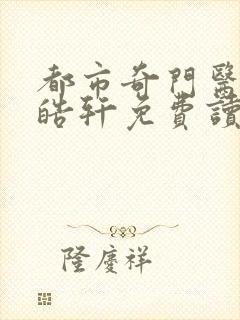 都市奇門醫
皓軒免費讀
隆慶祥